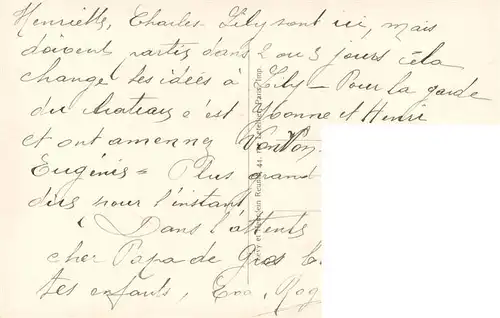 Henriette, Charles, Lily sont ici, mais
doivent partir dans 2 ou 3 jours cela
change les idées à Lily - Pour la garde
du chateau c'est Yvonne et Henri
et ont amenny
Eugénie = Plus grand
dire pour l'instant
Dans l'attente
cher Papa de Gros
tes enfants, Eva, Rog
Levy et Neurdein Réunis, 44, rue Letellier, Paris, Imp.